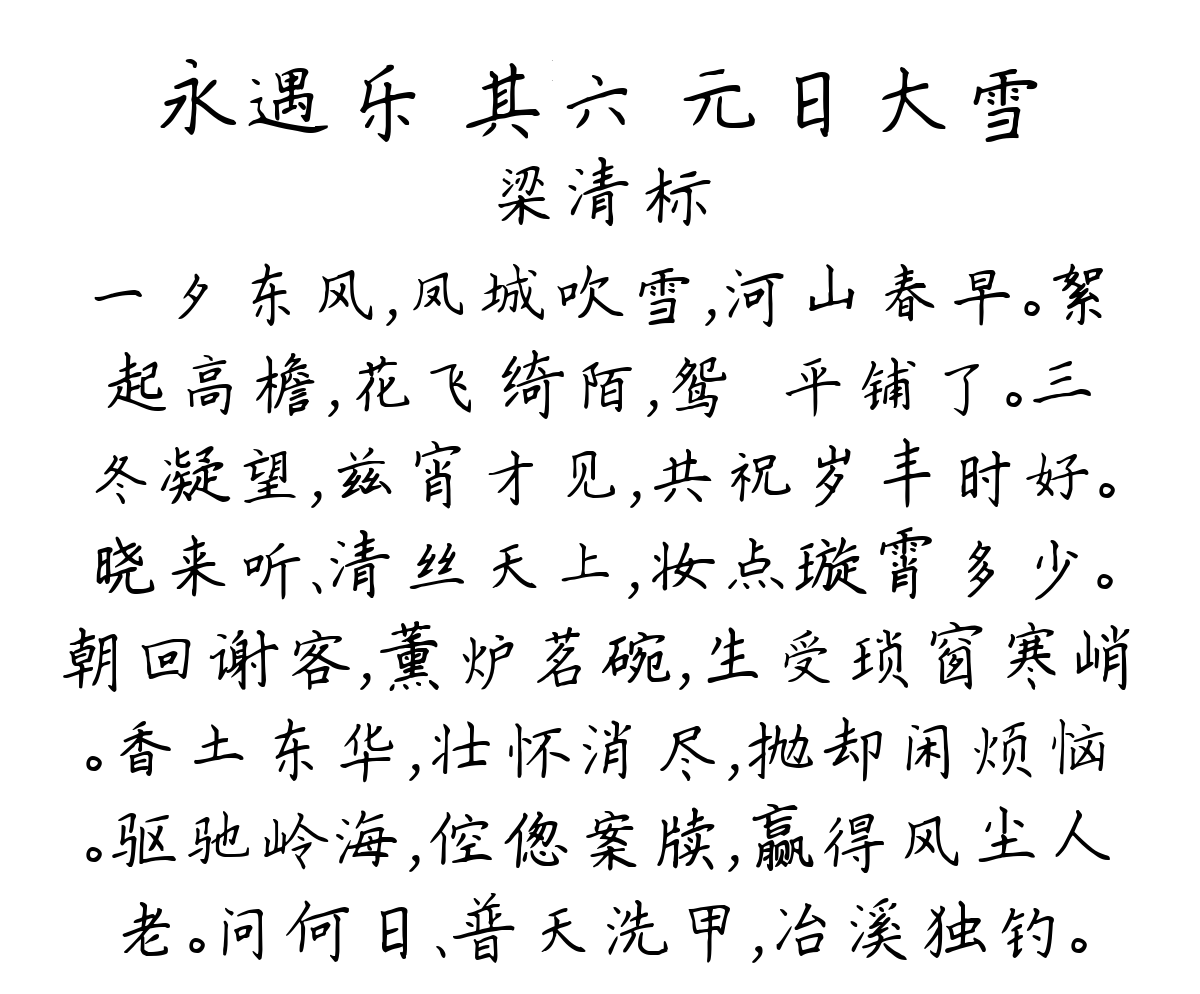 永遇乐 其六 元日大雪
梁清标
一夕东风,凤城吹雪,河山春早。絮
起高檐,花飞绮陌,鸳 平铺了。三
冬凝望,兹宵才见,共祝岁丰时好。
晓来听、清丝天上,妆点璇霄多少。
朝回谢客,薰炉茗碗,生受琐窗寒峭
。香土东华,壮怀消尽,抛却闲烦恼
。驱驰岭海,倥偬案牍,赢得风尘人
老。问何日、普天洗甲,冶溪独钓。